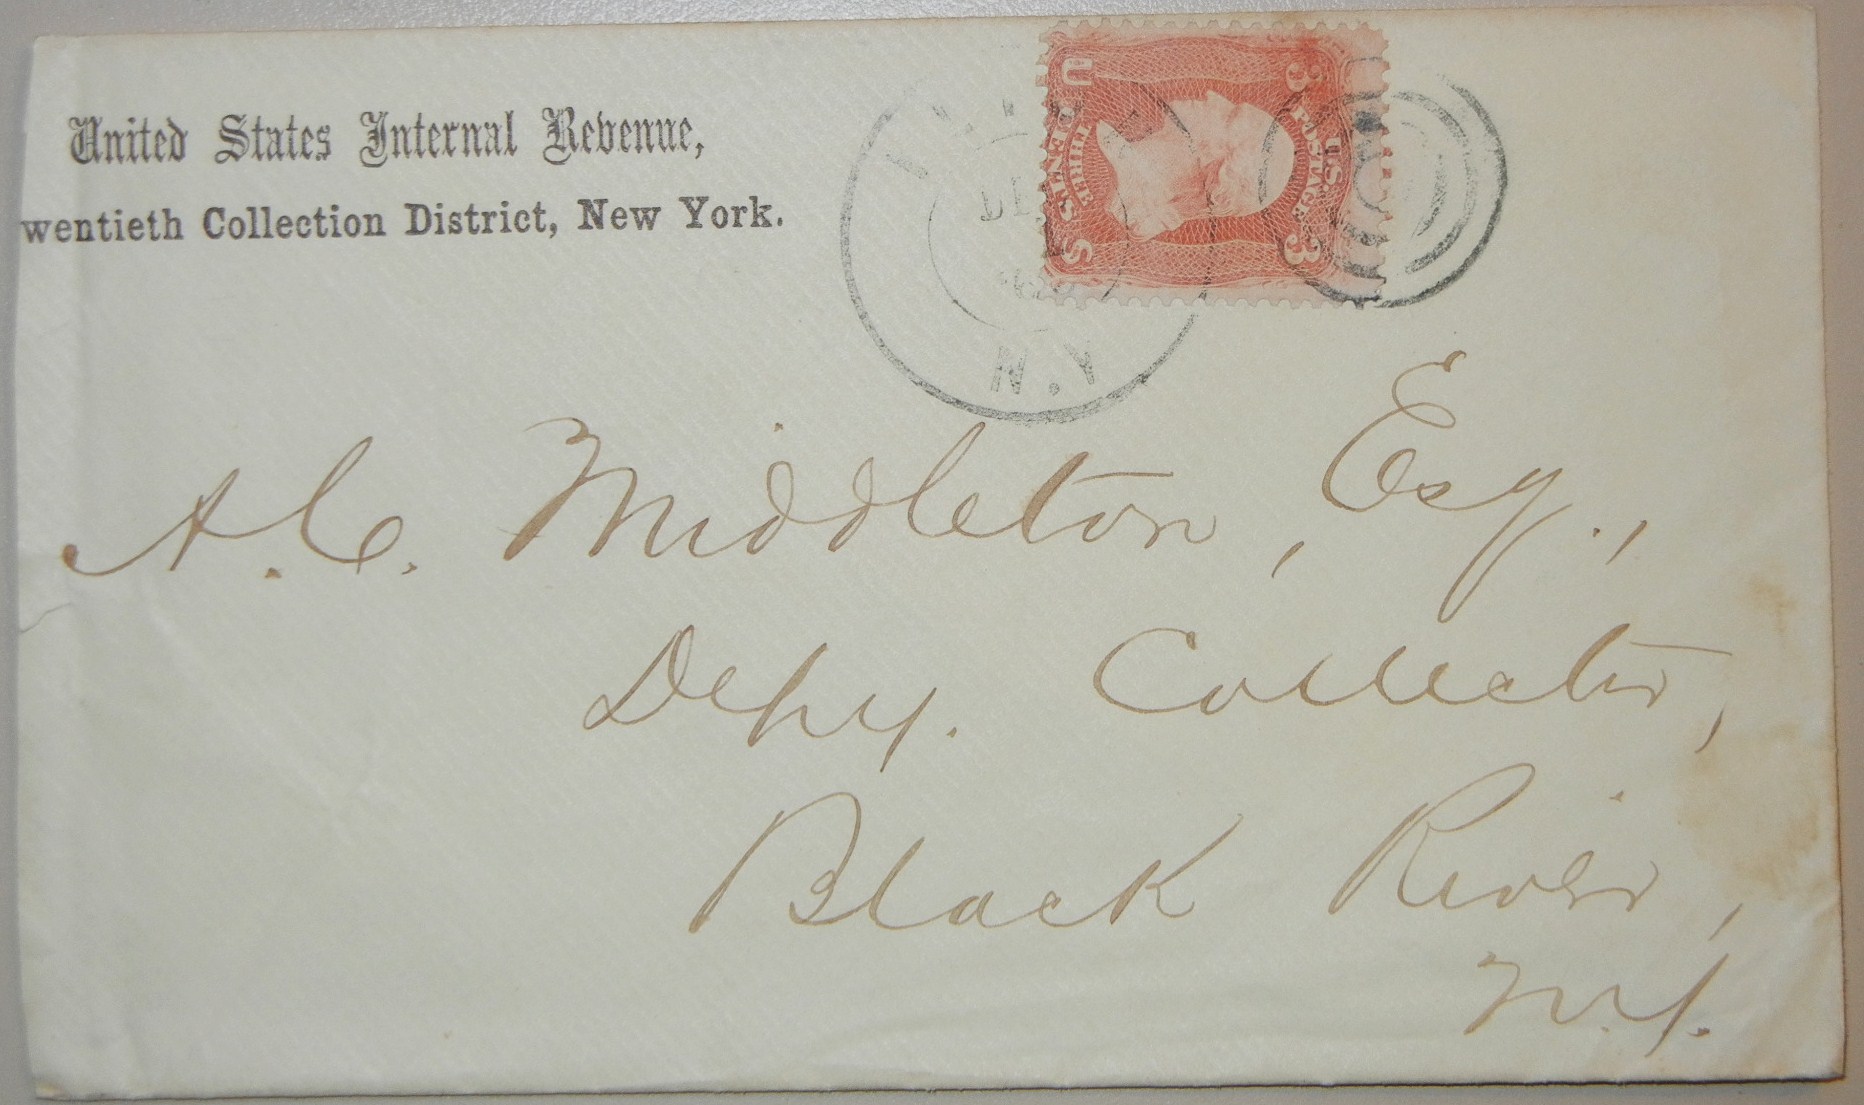 United States Internal Revenue,
wentieth Collection District, New York.
U.S. POSTAGE
3 3
THREE
U CENTS S
DE
N.Y
A. C. Middleton, Esq.,
Depy. Collector,
Black River,
N.Y.